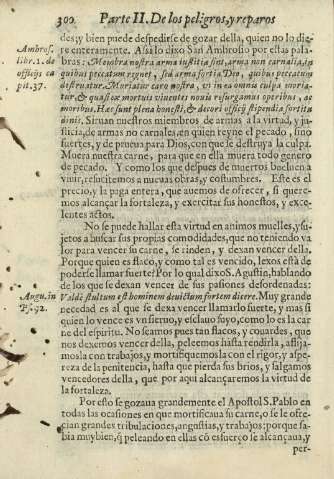 300 Parte II. De los peligros, y reparos
des; y bien puede despedirse de gozar della, quien no lo dige
re enteramente. Assi lo dixo San Ambrosio por estas pala-
bras: Membra nostra arma iustitiæ sint, arma non carnalia, in
quibus peccatum regnet, sed arma fortia Deo, quibus peccatum
destruatur. Moriatur caro nostra, vt in ea omnis culpa moria-
tur, & quasi ex mortuis viuentes nouis resurgamus operibus, ac
moribus. Hæc sunt plena honesti, & decori officij stipendia fortitu
dinis. Siruan nuestros miembros de armas a la virtud, y ju-
sticia, de armas no carnales, en quien reyne el pecado, sino
fuertes, y de prueua para Dios, con que se destruya la culpa.
Muera nuestra carne, para que en ella muera todo genero
de pecado. Y como los que despues de muertos bueluen a
viuir, resucitemos a nueuas obras, y costumbres. Este es el
precio, y la paga entera, que auemos de ofrecer, si quere-
mos alcançar la fortaleza, y exercitar sus honestos, y exce-
lentes actos.
Ambros.
libr. 1. de
officijs ca
pit. 37.
No se puede hallar esta virtud en animos muelles, y su-
jetos a buscar sus propias comodidades, que no teniendo va
lor para vencer su carne, se rinden, y dexan vencer della.
Porque quien es flaco, y como tal es vencido, lexos està de
poderse llamar fuerte? Por lo qual dixo S. Agustin, hablando
de los que se dexan vencer de sus pasiones desordenadas:
Valdè stultum est hominem deuictum fortem dicere. Muy grande
necedad es al que se dexa vencer llamarlo fuerte, y mas si
quien lo vence es vn sieruo, y esclauo suyo, como lo es la car
ne del espiritu. No seamos pues tan flacos, y couardes, que
nos dexemos vencer della, peleemos hasta rendirla, aflija-
mosla con trabajos, y mortifiquemosla con el rigor, y aspe-
reza de la penitencia, hasta que pierda sus brios, y salgamos
vencedores della, que por aqui alcançaremos la virtud de
la fortaleza.
Augu. in
Ps. 92.
Por esto se gozaua grandemente el Apostol S. Pablo en
todas las ocasiones en que mortificaua su carne, o se le ofre-
cian grandes tribulaciones, angustias, y trabajos: porque sa-
bia muy bien, q̃ peleando en ellas cõ esfuerço se alcançaua, y
per-